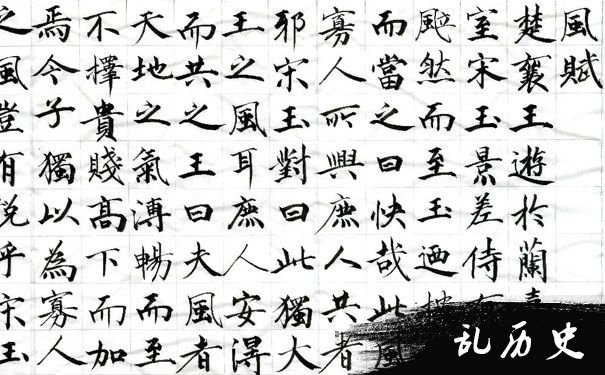 風賦
楚襄王遊於蘭
室宋玉景差侍
颯然而至玉迺
而當之曰快哉此風
寡人所與庶人共者
邪宋玉對曰此獨大
王之風耳庶人安得
而共之王曰夫風者
天地之氣溥暢而至
不擇貴賤高下而加
焉今子獨以為寡人
之風豈有說乎宋玉
乱历史